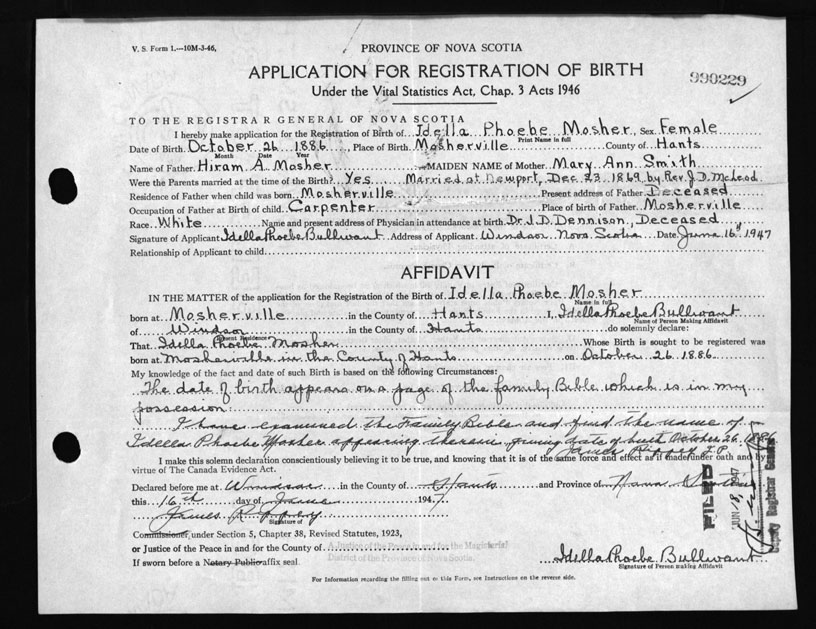 V. S. Form 1.—10M-3-46,
PROVINCE OF NOVA SCOTIA
APPLICATION FOR REGISTRATION OF BIRTH
990229
Under the Vital Statistics Act, Chap. 3 Acts 1946
TO THE REGISTRAR GENERAL OF NOVA SCOTIA
I hereby make application for the Registration of Birth of Idella Phoebe Mosher Sex Female
Print Name in full
Date of Birth October 26 1886 Place of Birth Mosherville County of Hants
Month Date Year
Name of Father Hiram A Mosher MAIDEN NAME of Mother Mary Ann Smith
Were the Parents married at the time of the Birth? Yes Married at Newport, Dec 23 1869 by Rev. J. D. McLeod
Residence of Father when child was born Mosherville Present address of Father Deceased
Occupation of Father at Birth of child Carpenter Place of birth of Father Mosherville
Race White Name and present address of Physician in attendance at birth Dr. J. D. Dennison, Deceased
Signature of Applicant Idella Phoebe Bullwant Address of Applicant Windsor Nova Scotia Date June 16th 1947
Relationship of Applicant to child
AFFIDAVIT
IN THE MATTER of the application for the Registration of the Birth of Idella Phoebe Mosher
Name in full
born at Mosherville in the County of Hants I, Idella Phoebe Bullwant
Name of Person Making Affidavit
of Windsor in the County of Hants do solemnly declare:
Present Residence
That Idella Phoebe Mosher Whose Birth is sought to be registered was
born at Mosherville in the County of Hants on October 26 1886
My knowledge of the fact and date of such Birth is based on the following Circumstances:
The date of birth appears on a page of the family Bible which is in my
possession
I have examined the Family Bible and find the name of
Idella Phoebe Mosher appearing therein giving date of birth October 26, 1886
James J. P.
I make this solemn declaration conscientiously believing it to be true, and knowing that it is of the same force and effect as if made under oath and by
virtue of The Canada Evidence Act.
Declared before me at Windsor in the County of Hants and Province of Nova Scotia
this 16th day of June 1947
James R
Signature of
Commissioner, under Section 5, Chapter 38, Revised Statutes, 1923,
or Justice of the Peace in and for the County of A Justice of the Peace in and for the Magisterial
District of the Province of Nova Scotia.
If sworn before a Notary Public affix seal
Idella Phoebe Bullwant
Signature of Person making Affidavit
FILED
JUN 18 1947
Deputy Registrar General
For Information regarding the filling out of this Form, see Instructions on the reverse side.